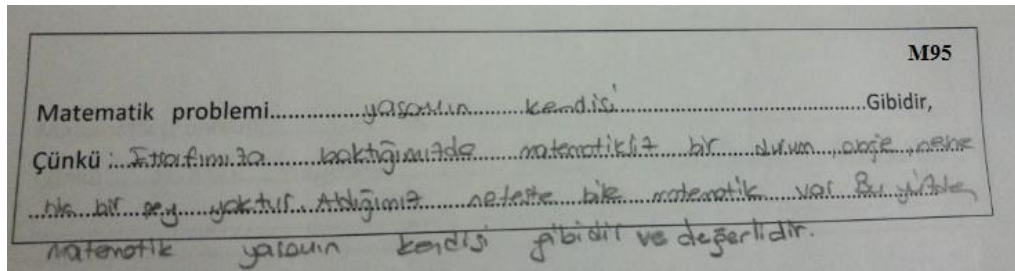 M95
Matematik problemi.............yaşamın kendisi.............Gibidir,
Çünkü : Etrafımıza baktığımızda matematiksiz bir durum, obje, nesne
hiç bir şey yoktur. Aldığımız nefeste bile matematik var. Bu yüzden
matematik yaşamın kendisi gibidir ve değerlidir.